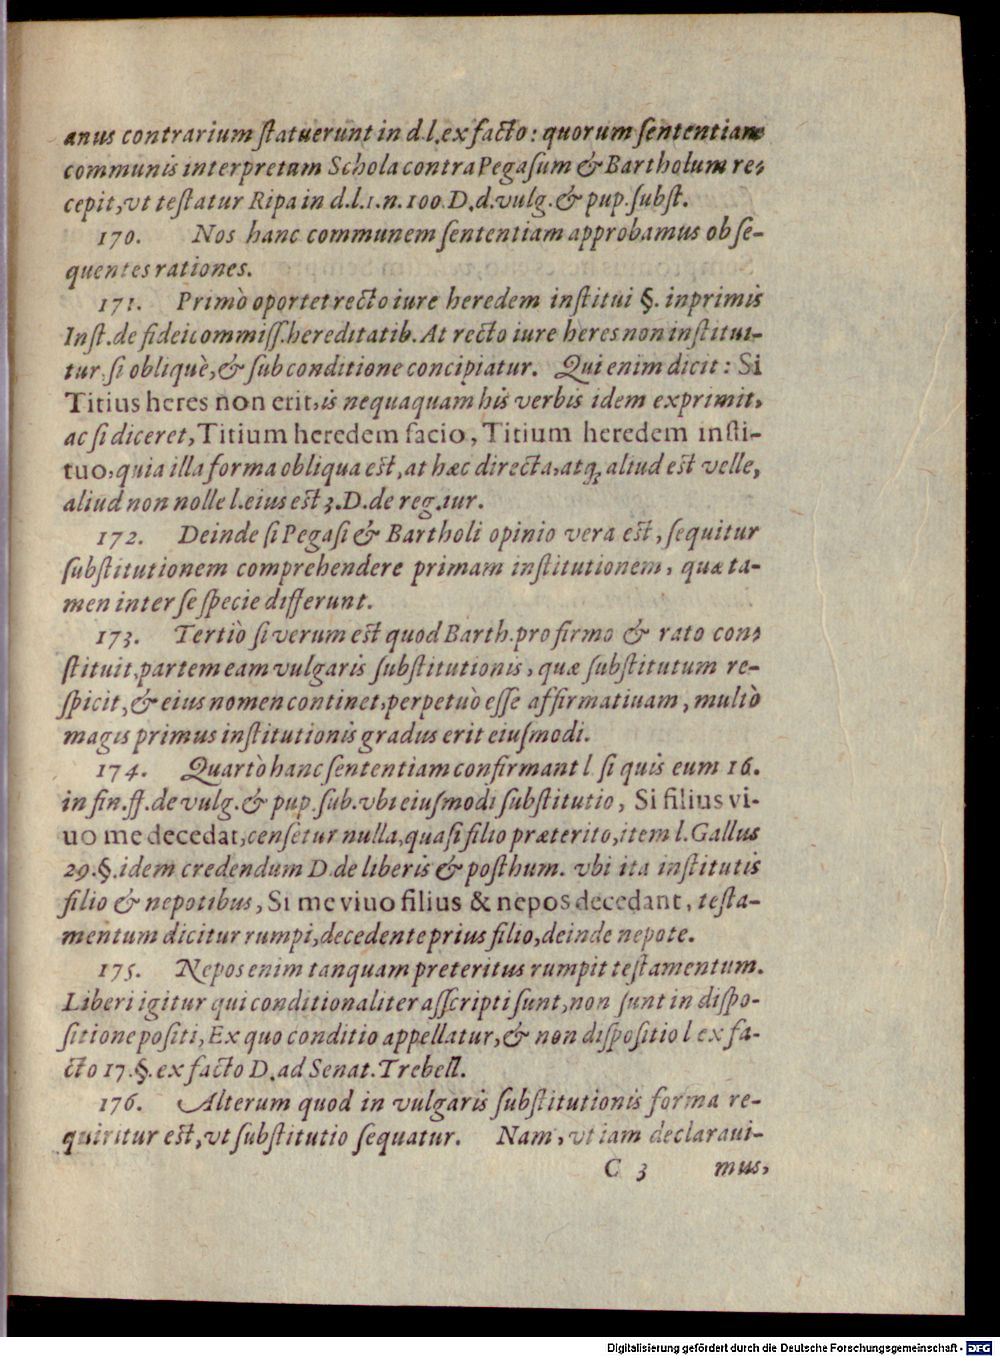 anus contrarium statuerunt in d.l.ex facto: quorum sententiam
communis interpretum Schola contra Pegasum & Bartholum re-
cepit, vt testatur Ripa in d.l.1.n.100 D.d.vulg.& pup.subst.
170. Nos hanc communem sententiam approbamus ob se-
quentes rationes.
171. Primò oportet recto iure heredem institui §. inprimis
Inst.de fideicommiss.hereditatib. At recto iure heres non institui-
tur, si obliquè, & sub conditione concipiatur. Qui enim dicit: Si
Titius heres non erit, is nequaquam his verbis idem exprimit,
ac si diceret, Titium heredem facio, Titium heredem insti-
tuo, quia illa forma obliqua est, at hæc directa, atq; aliud est velle,
aliud non nolle l.eius est 3.D.de reg.iur.
172. Deinde si Pegasi & Bartholi opinio vera est, sequitur
substitutionem comprehendere primam institutionem, quæ ta-
men inter se specie differunt.
173. Tertiò si verum est quod Barth.pro firmo & rato con-
stituit, partem eam vulgaris substitutionis, quæ substitutum re-
spicit, & eius nomen continet, perpetuò esse affirmatiuam, multò
magis primus institutionis gradus erit eiusmodi.
174. Quartò hanc sententiam confirmant l si quis eum 16.
in fin.ff.de vulg.& pup.sub.vbi eiusmodi substitutio, Si filius vi-
uo me decedat, censetur nulla, quasi filio præterito, item l.Gallus
29.§.idem credendum D.de liberis & posthum. vbi ita institutis
filio & nepotibus, Si me viuo filius & nepos decedant, testa-
mentum dicitur rumpi, decedente prius filio, deinde nepote.
175. Nepos enim tanquam preteritus rumpit testamentum.
Liberi igitur qui conditionaliter asscripti sunt, non sunt in dispo-
sitione positi, Ex quo conditio appellatur, & non dispositio l ex fa-
cto 17.§.ex facto D.ad Senat.Trebell.
176. Alterum quod in vulgaris substitutionis forma re-
quiritur est, vt substitutio sequatur. Nam, vt iam declaraui-
C 3 mus,
Digitalisierung gefördert durch die Deutsche Forschungsgemeinschaft - DFG